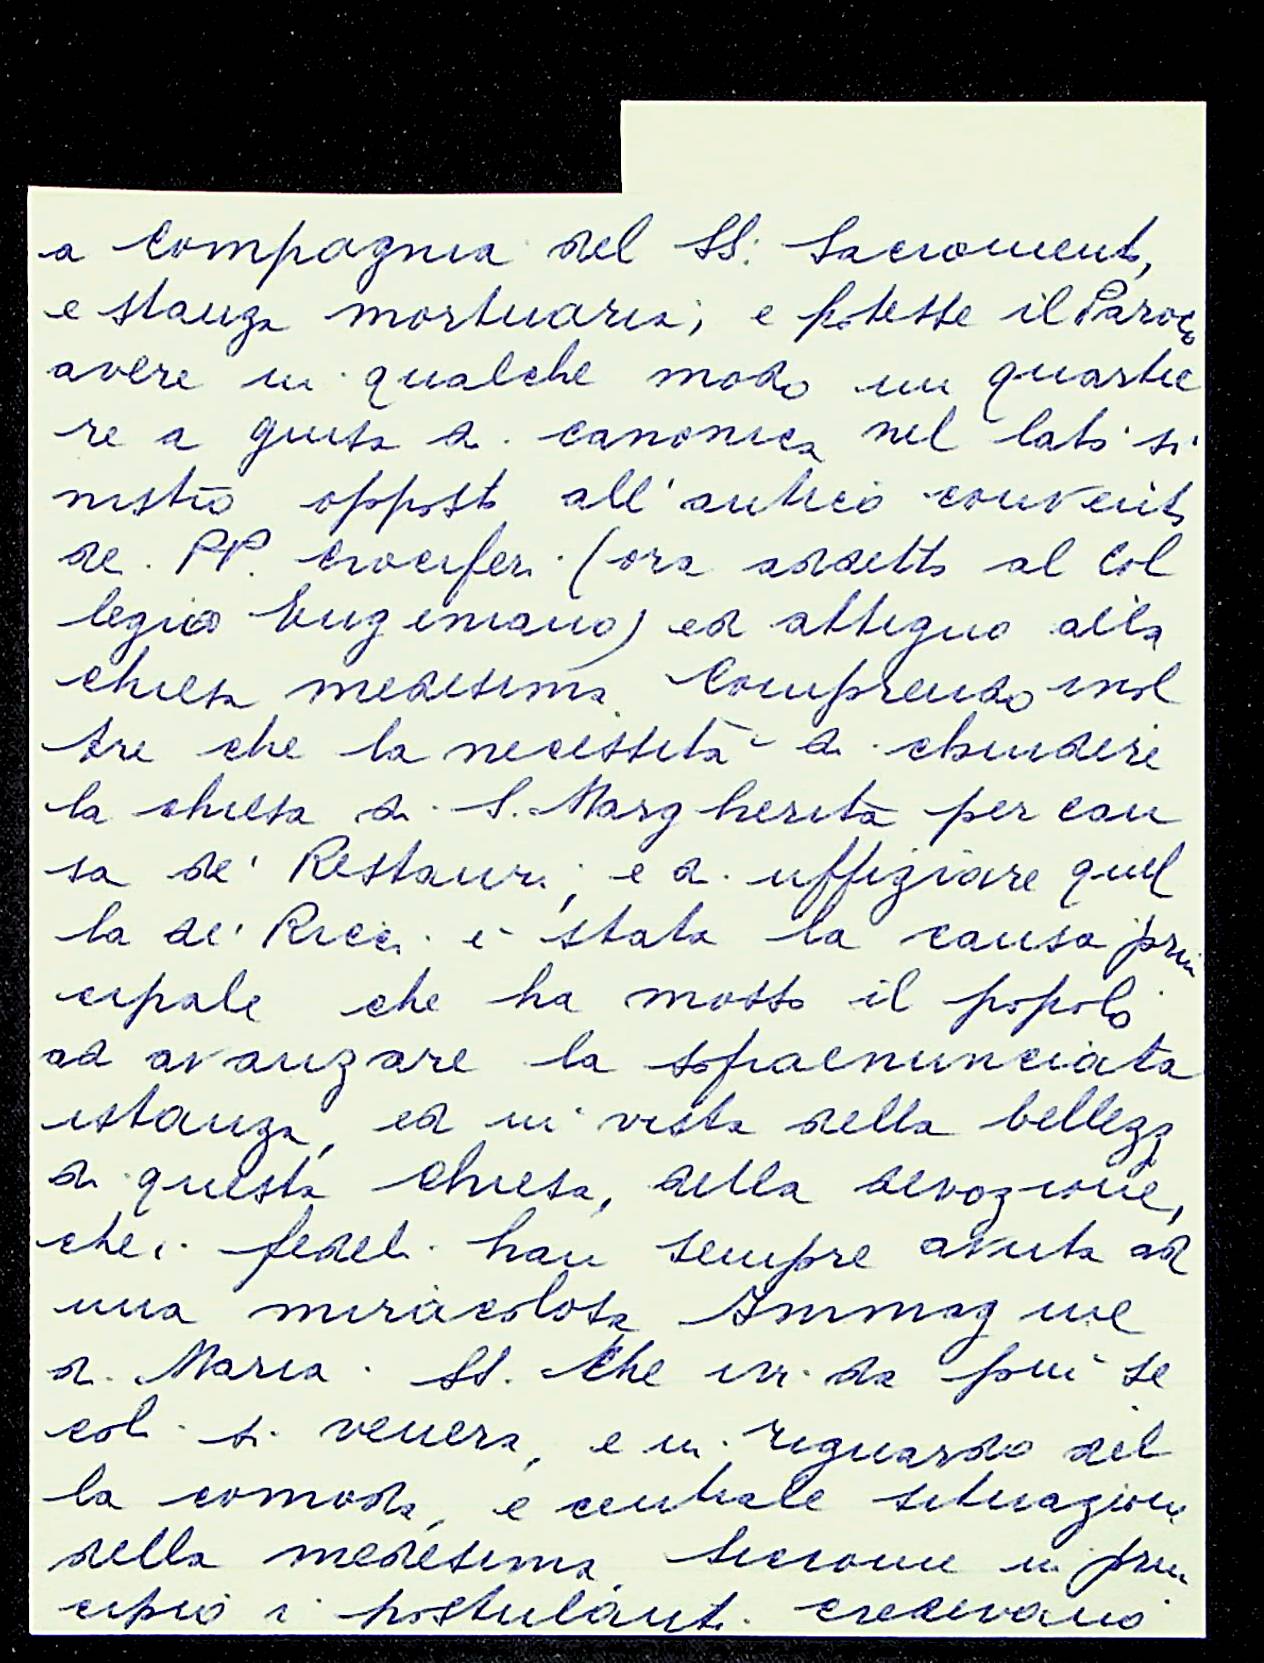 a Compagnia del SS. Sacramento,
e stanza mortuaria; e potesse il Paroco
avere in qualche modo un quartie
re a guisa di canonica nel lato si
nistro opposto all'antico convento
de PP. Crociferi (ora addetto al Col
legio Eugeniano) ed attiguo alla
chiesa medesima. Comprendo inol
tre che la necessità di chiudere
la chiesa di S. Margherita per cau
sa de' Restauri, e di uffiziare quel
la de' Ricci è stata la causa prin
cipale che ha mosso il popolo
ad avanzare la sopraenunciata
istanza, ed in vista della bellezz
di questa Chiesa, della devozione,
che i fedeli han sempre avuta ad
una miracolosa Immagine
di Maria SS. Che ivi da più se
coli si venera, e in riguardo del
la comoda, e centrale situazione
della medesima. Siccome in prin
cipio i postulanti credevano